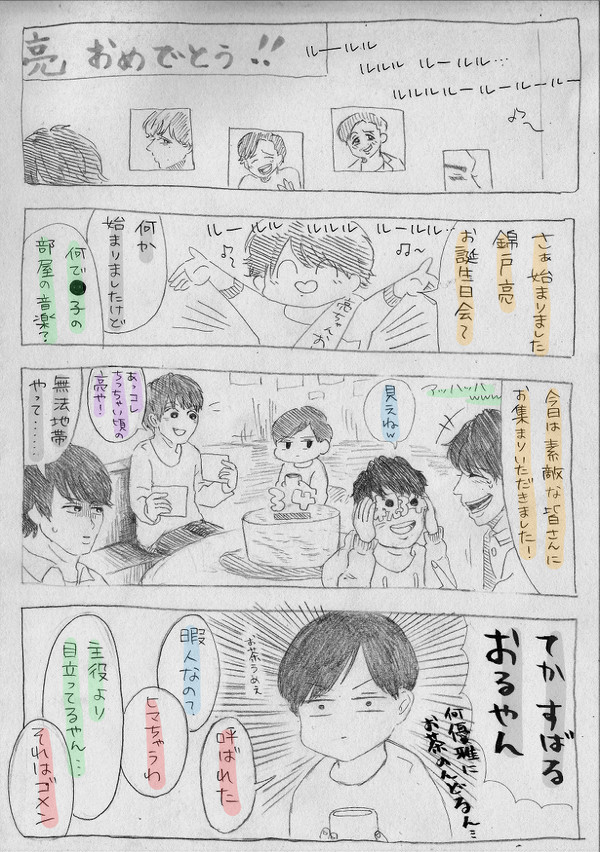 亮 おめでとう!!
ルールル
ルルル ルールル…
ルルルルールールールー
さぁ始まりました
錦戸亮
お誕生日会〜
ルールル ルルル ルールル…
亮ちゃんてお
何か
始まりましたけど
何で●子の
部屋の音楽?
今日は素敵な皆さんに
お集まりいただきました!
アッハッハwww
見えねw
34
あっコレ
ちっちゃい頃の
亮や!
無法地帯
やって……
てか すばる
おるやん
何優雅に
お茶のんどるん…
お茶うめぇ
呼ばれた
暇人なの?
ヒマちゃうわ
主役より
目立ってるやん…
それはゴメン